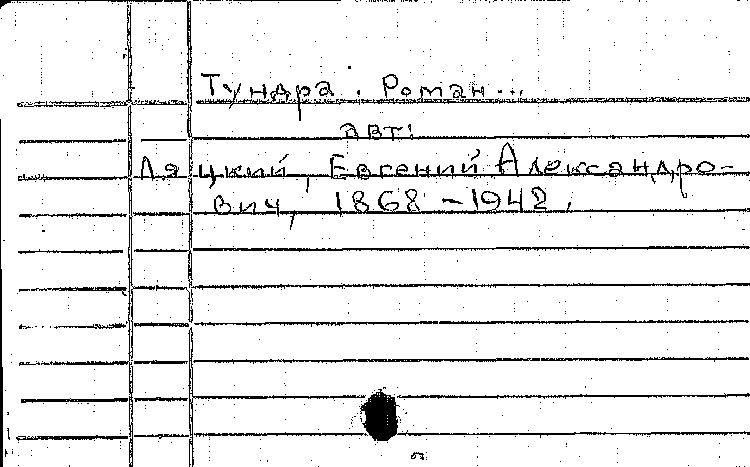 Тундра. Роман...
авт:
Ляцкий, Евгений Александро-
вич, 1868-1942.